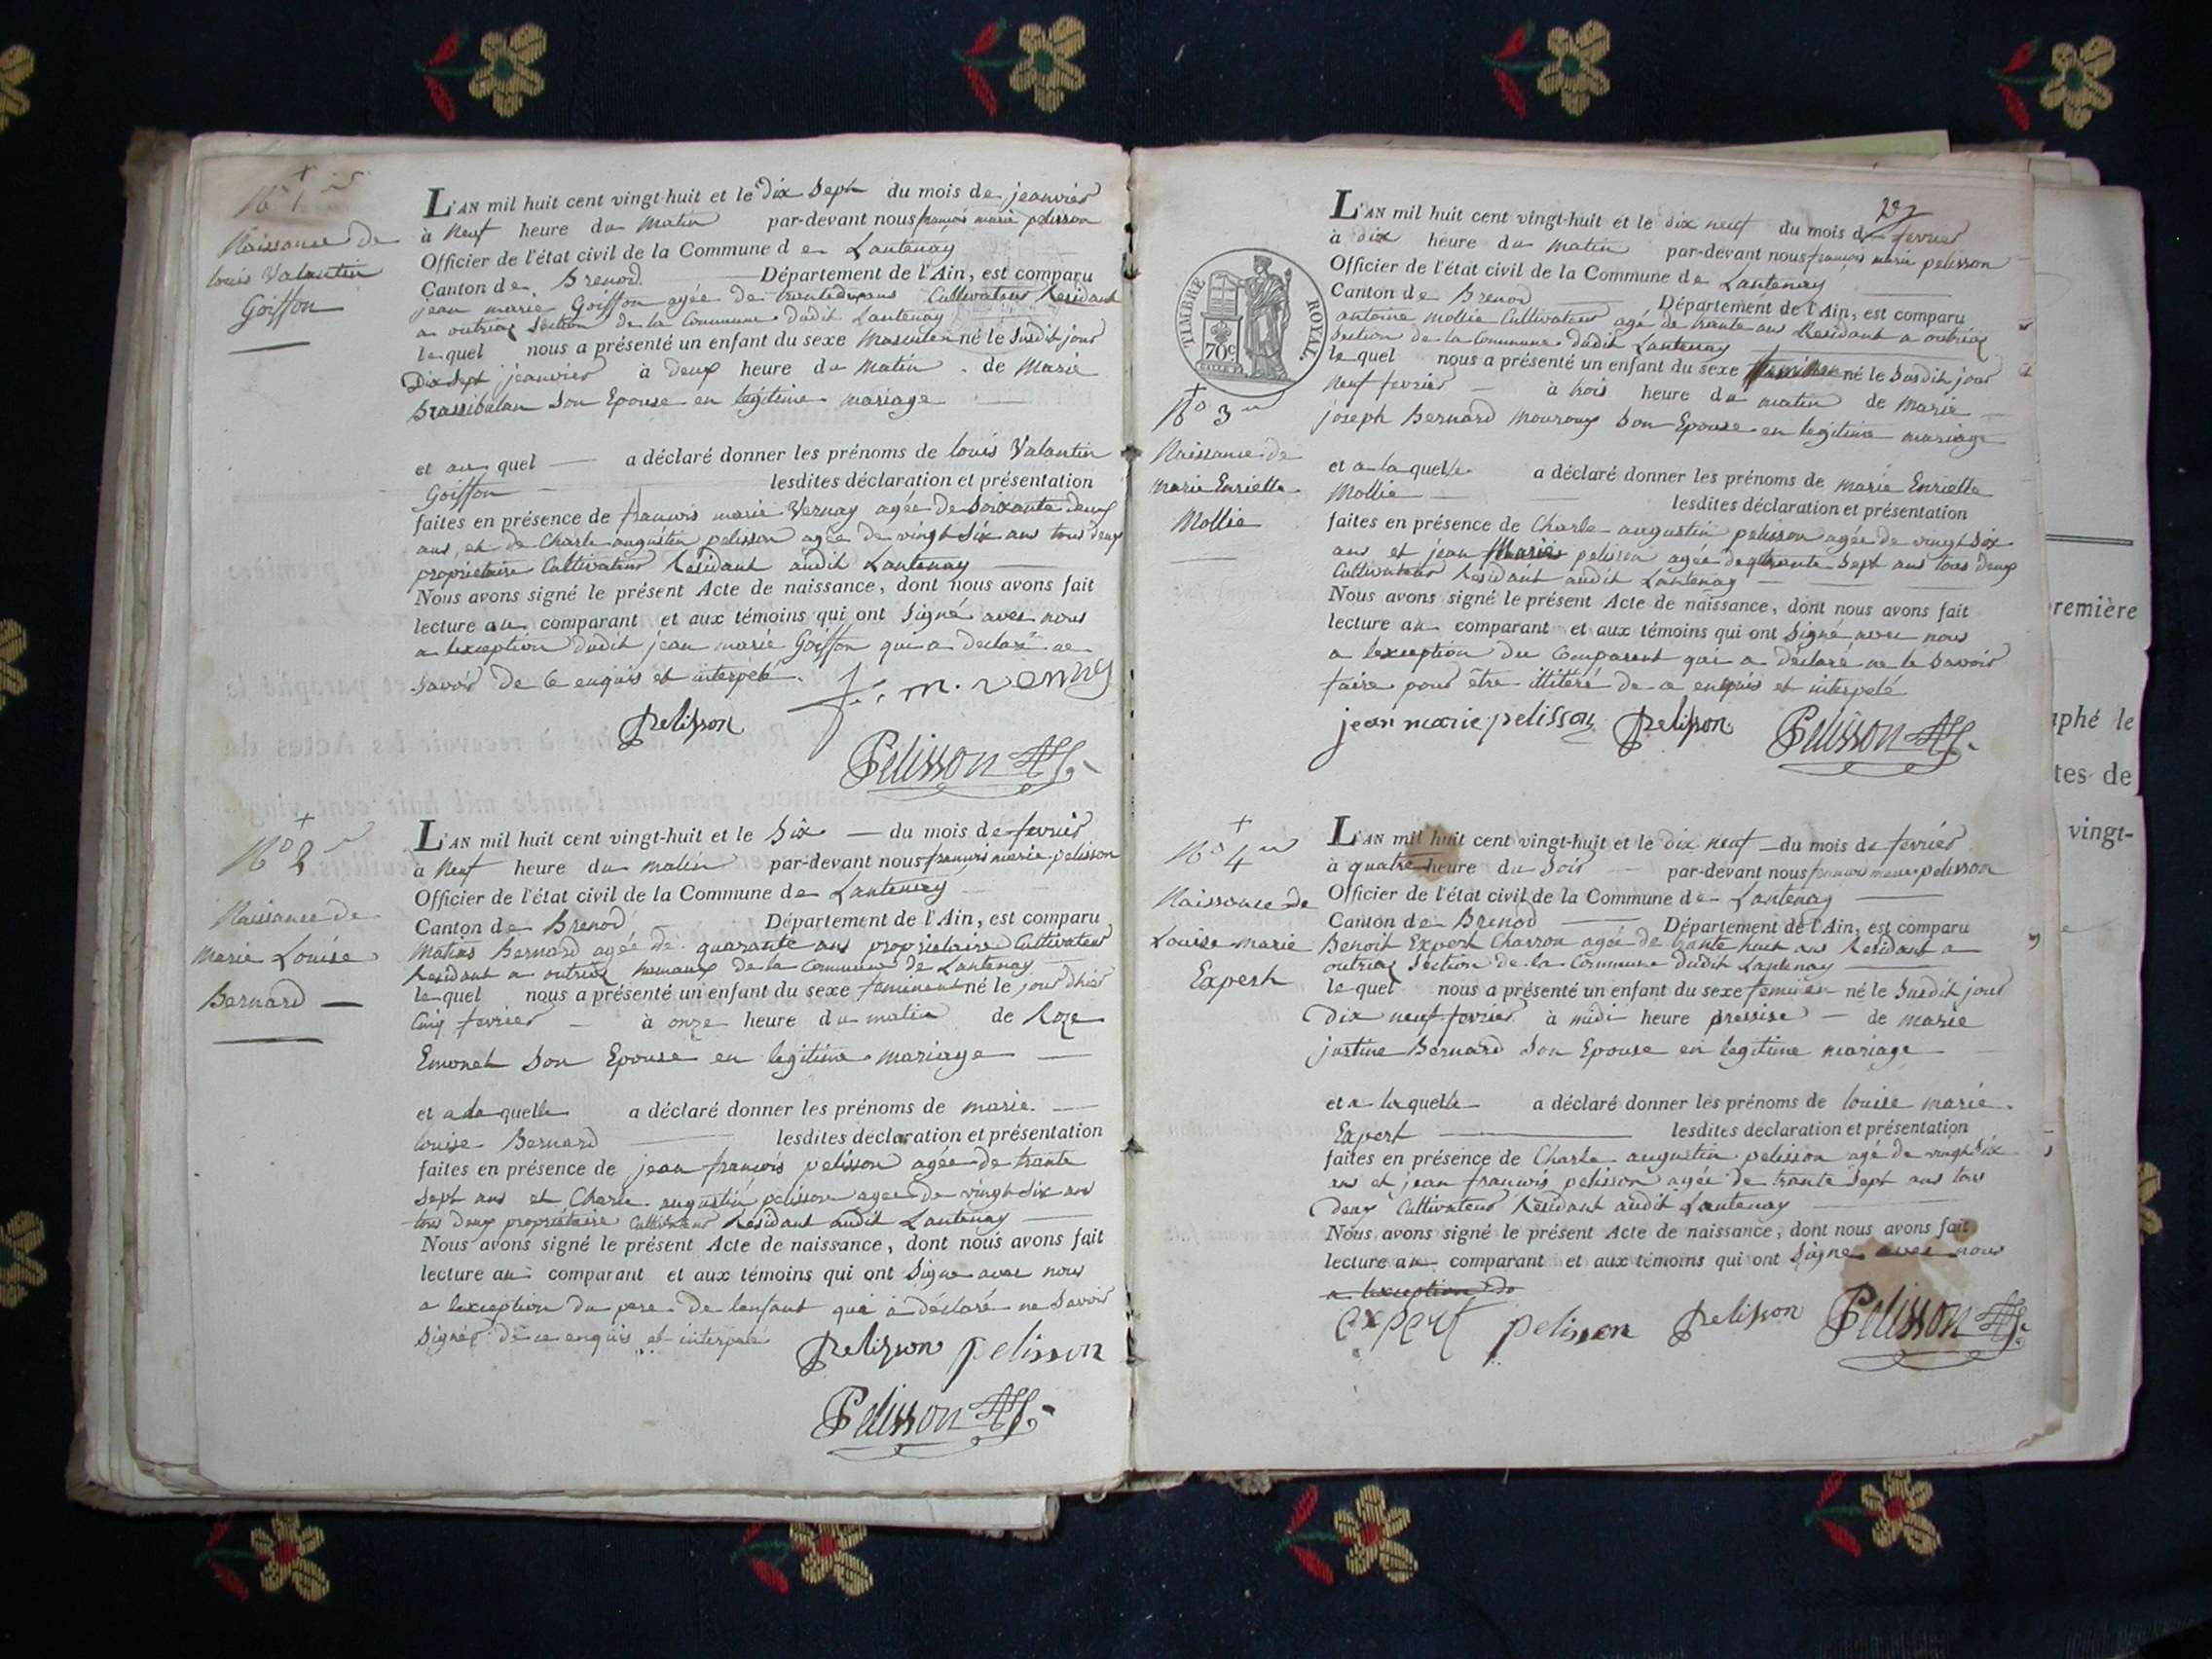 No 1er
Naissance de
louis Valantin
Goiffon
L'AN mil huit cent vingt-huit et le dix Sept du mois de jeanvier
à Neuf heure du Matin par-devant nous françois marie pelisson
Officier de l'état civil de la Commune de Lantenay
Canton de Brenod Département de l'Ain, est comparu
jean marie Goiffon agée de trantedeux ans Cultivateur Residant
a outriaz Section de la Commune dudit Lantenay
lequel nous a présenté un enfant du sexe Masculen né le Susdit jour
Dix Sept jeanvier à deux heure du Matin de Marie
Brassibulan Son Epouse en légitime mariage
et au quel a déclaré donner les prénoms de louis Valantin
Goiffon lesdites déclaration et présentation
faites en présence de françois marie Vernay agée de Soixante deux
ans, et de Charle augustin pelisson agée de vingt Six ans tous deux
propriétaire Cultivateur Résidant audit Lantenay
Nous avons signé le présent Acte de naissance, dont nous avons fait
lecture au comparant et aux témoins qui ont Signé avec nous
a lexception dudit jean marie Goiffon qui a declaré ne
Savoir de ce enquis et interpélé.
f. m. vernay
Pelisson
Pelisson
No 2
Naissance de
Marie Louise
Bernard
L'AN mil huit cent vingt-huit et le Six du mois de fevrier
à Neuf heure du Matin par-devant nous françois marie pelisson
Officier de l'état civil de la Commune de Lantenay
Canton de Brenod Département de l'Ain, est comparu
Matias Bernard agée de quarante ans propriétaire Cultivateur
Residant a outriaz hamaux de la Commune de Lantenay
lequel nous a présenté un enfant du sexe né le jour dhier
Cinq fevrier à onze heure du matin de Roze
Emonet Son Epouse en legitime mariage
et a la quelle a déclaré donner les prénoms de marie
louise Bernard lesdites déclaration et présentation
faites en présence de jean françois pelisson agée de trante
Sept ans et Charle augustin pelisson agée de vingt Six ans
tous deux propriétaire Cultivateur Résidant audit Lantenay
Nous avons signé le présent Acte de naissance, dont nous avons fait
lecture au comparant et aux témoins qui ont Signe avec nous
a lexception du pere de lenfant qui a déclaré ne Savoir
Signer de ce enquis et interpelé
Pelisson pelisson
Pelisson
TIMBRE ROYAL.
70c
No 3
Naissance de
Marie Enriette
Mollie
L'AN mil huit cent vingt-huit et le dix neuf du mois de fevrier
à dix heure du matin par-devant nous françois marie pelisson
Officier de l'état civil de la Commune de Lantenay
Canton de Brenod Département de l'Ain, est comparu
antoine mollie Cultivateur agé de trante ans Residant a outriaz
Section de la Commune dudit Lantenay
lequel nous a présenté un enfant du sexe né le Susdit jour
neuf fevrier à trois heure du matin de Marie
joseph Bernard mouroux Son Epouse en legitime mariage
et a la quelle a déclaré donner les prénoms de marie Enriette
Mollie lesdites déclaration et présentation
faites en présence de Charle augustin pelisson agée de vingt Six
ans et jean Marie pelisson agée de trante Sept ans tous deux
Cultivateur Résidant audit Lantenay
Nous avons signé le présent Acte de naissance, dont nous avons fait
lecture au comparant et aux témoins qui ont Signé avec nous
a lexception du Comparent qui a déclaré ne le Savoir
faire pour être illitéré de ce enquis et interpelé
jean marie pelisson Pelisson Pelisson
No 4
Naissance de
Louise marie
Expert
L'AN mil huit cent vingt-huit et le dix neuf du mois de février
à quatre heure du Soir par-devant nous françois marie pelisson
Officier de l'état civil de la Commune de Lantenay
Canton de Brenod Département de l'Ain, est comparu
Benoit Expert Charron agée de trante huit ans Residant a
outriaz Section de la Commune dudit Lantenay
lequel nous a présenté un enfant du sexe femilen né le Susdit jour
Dix neuf fevrier à midi heure pressise de marie
justine Bernard Son Epouse en legitime mariage
et a laquelle a déclaré donner les prénoms de louise marie
Expert lesdites déclaration et présentation
faites en présence de Charle augustin pelisson agé de vingt Six
ans et jean françois pelisson agée de trante Sept ans tous
deux Cultivateur Résidant audit Lantenay
Nous avons signé le présent Acte de naissance, dont nous avons fait
lecture au comparant et aux témoins qui ont Signe avec nous
a lexception d
expert pelisson Pelisson Pelisson
remière
aphé le
tes de
vingt-